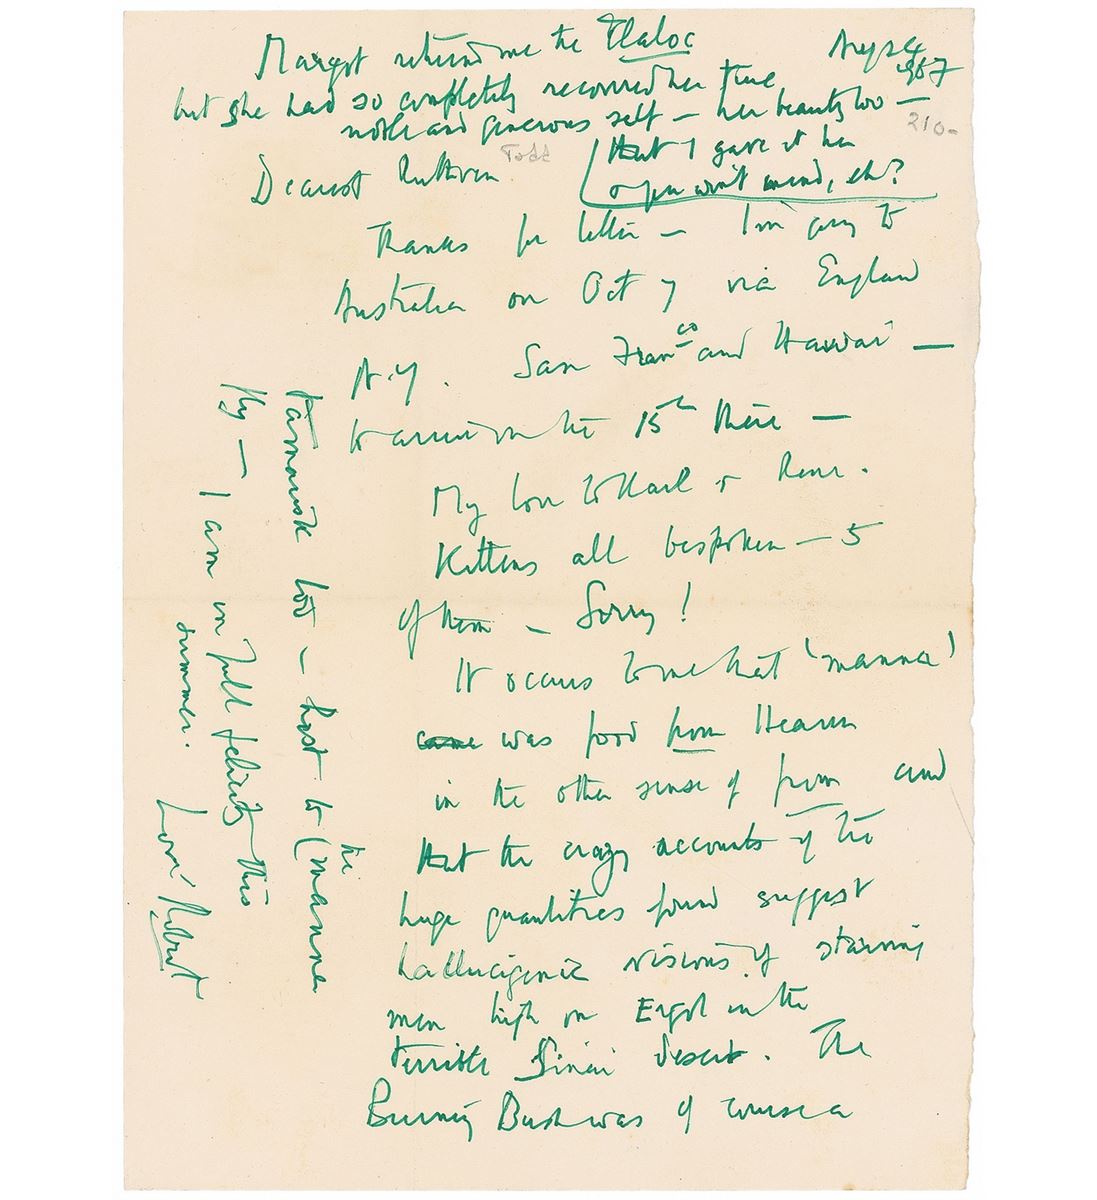 Margot returned me the Tlaloc
but she had so completely recovered her true
noble and generous self — her beauty too —
that I gave it her
you won't mind, eh?
1967
210-
Dearest Ruthven
Todd
Thanks for letter — I'm going to
Australia on Oct 7 via England
N.Y. San Franco and Hawai —
to arrive on the 15th there —
My love to Karl &
Kittens all bespoken — 5
of them — Sorry!
It occurs to me that 'manna'
was food from Heaven
in the other sense of from and
that the crazy accounts of the
huge quantities found suggest
hallucigenic visions of starving
men high on Ergot in the
terrible Sinai desert. The
Burning Bush was of course a
Tamarisk too — host to (the manna
fly — I am in full felicity this
summer.
Love Robert